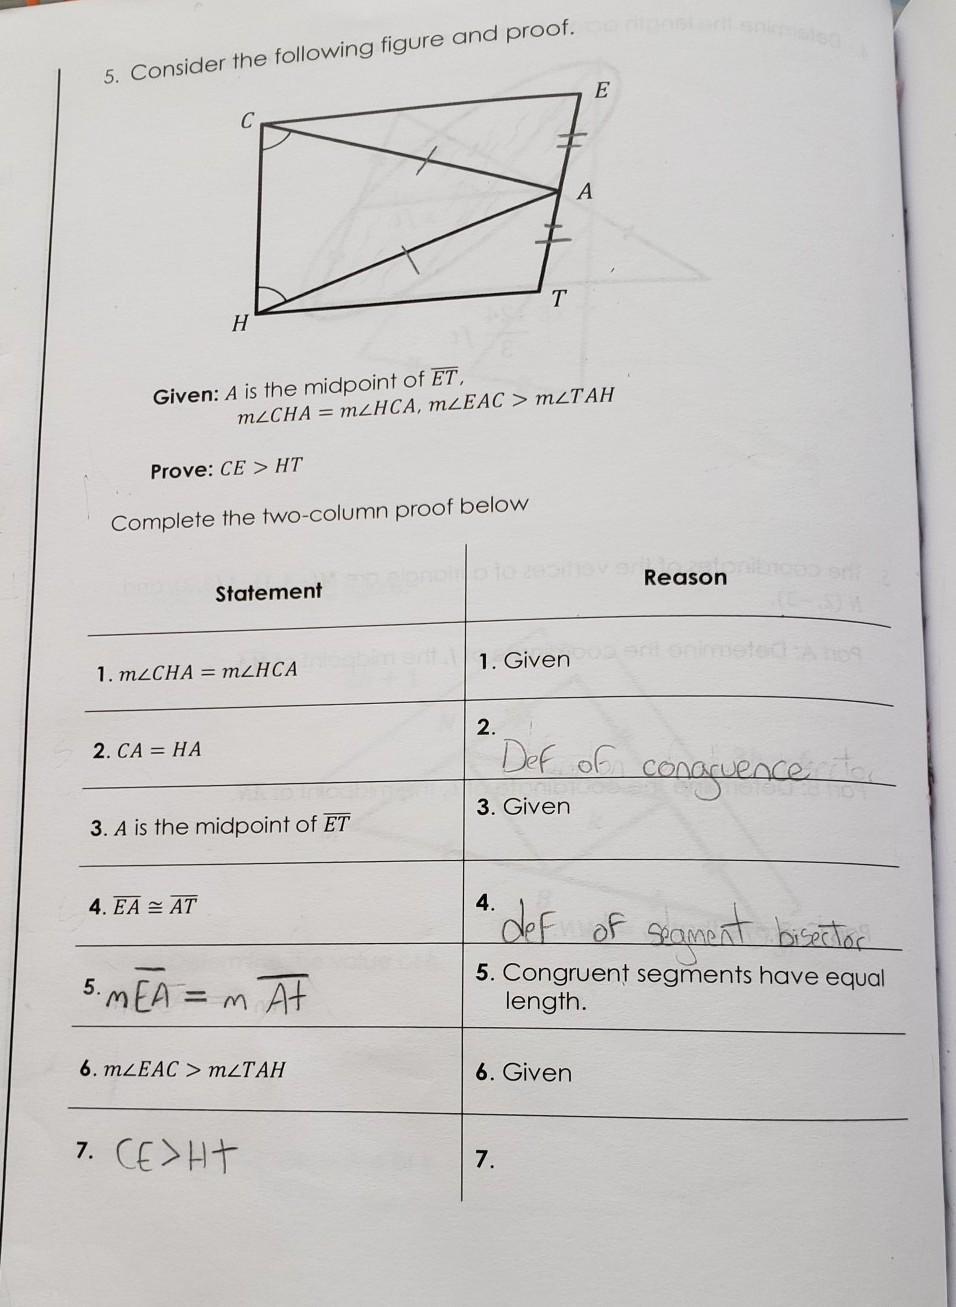 5. Consider the following figure and proof.
E
C
A
T
H
Given: A is the midpoint of ET,
m∠CHA = m∠HCA, m∠EAC > m∠TAH
Prove: CE > HT
Complete the two-column proof below
Statement
Reason
1. m∠CHA = m∠HCA
1. Given
2. CA = HA
2.
Def of congruence
3. A is the midpoint of ET
3. Given
4. EA ≅ AT
4.
def of segment bisector
5. mEA = m At
5. Congruent segments have equal
length.
6. m∠EAC > m∠TAH
6. Given
7. CE > Ht
7.